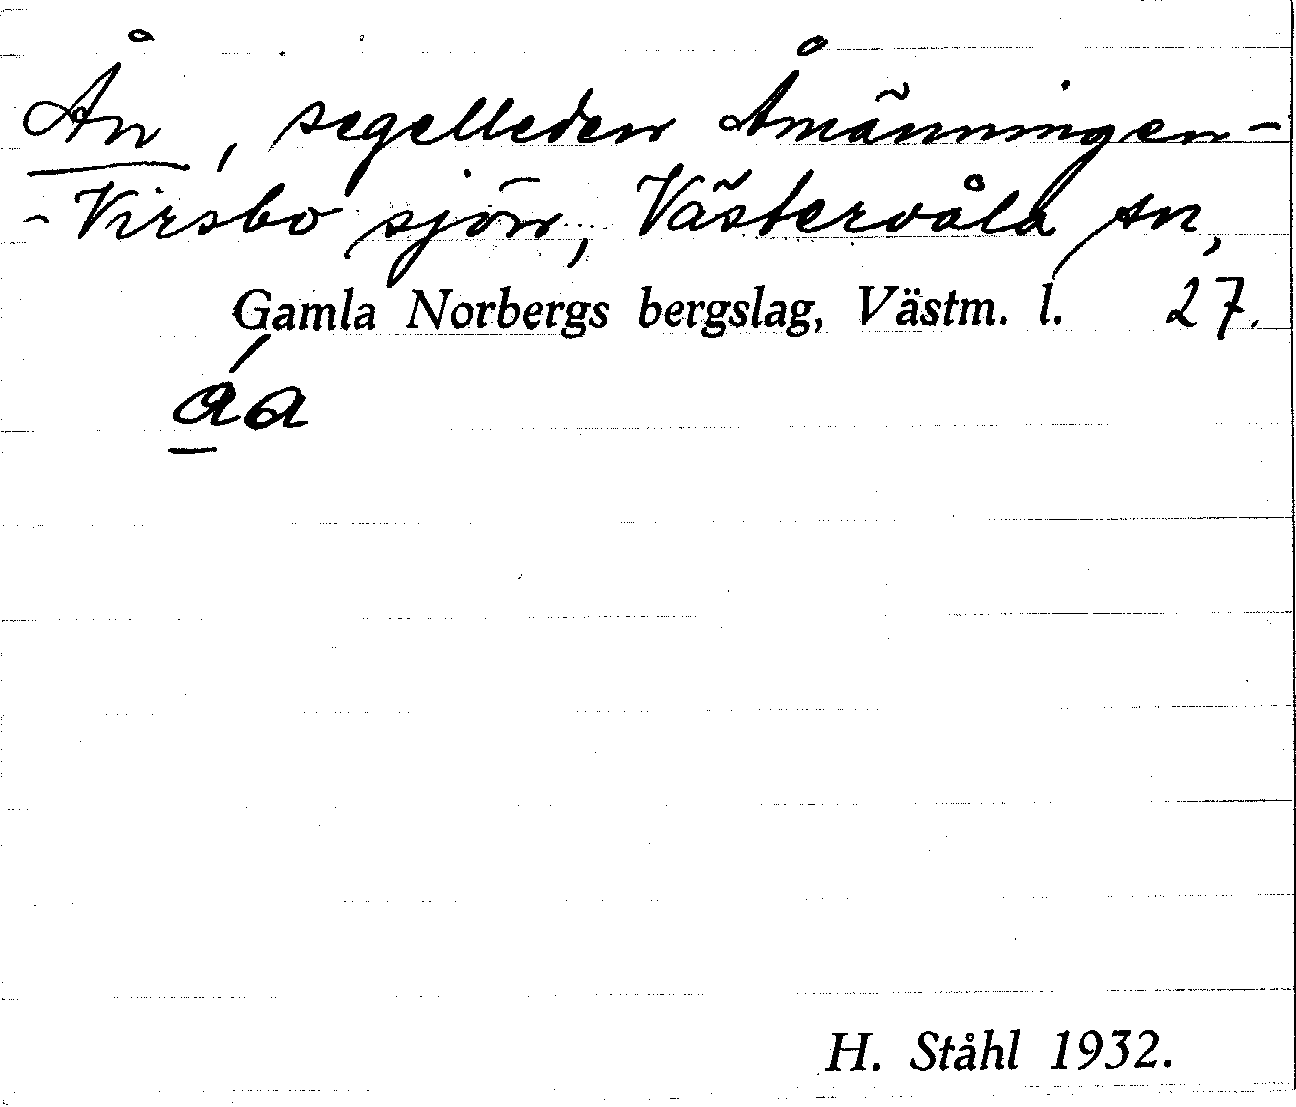 Ån, segelleden Åmänningen-
- Virsbo sjön, Västervåla sn,
Gamla Norbergs bergslag, Västm. l. 27.
áa
H. Ståhl 1932.